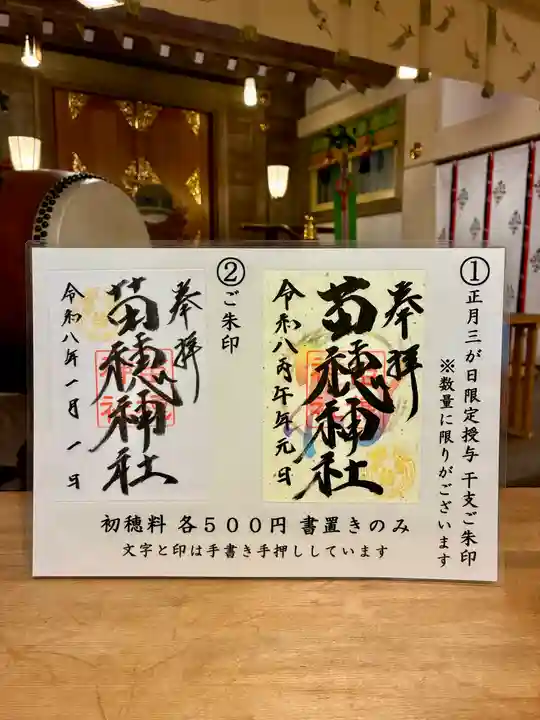 ①
正月三が日限定授与 干支ご朱印
※数量に限りがございます
奉拝
苗穂神社
令和八丙午年元日
②
ご朱印
奉拝
苗穂神社
令和八年一月一日
初穂料 各500円 書置きのみ
文字と印は手書き手押ししています